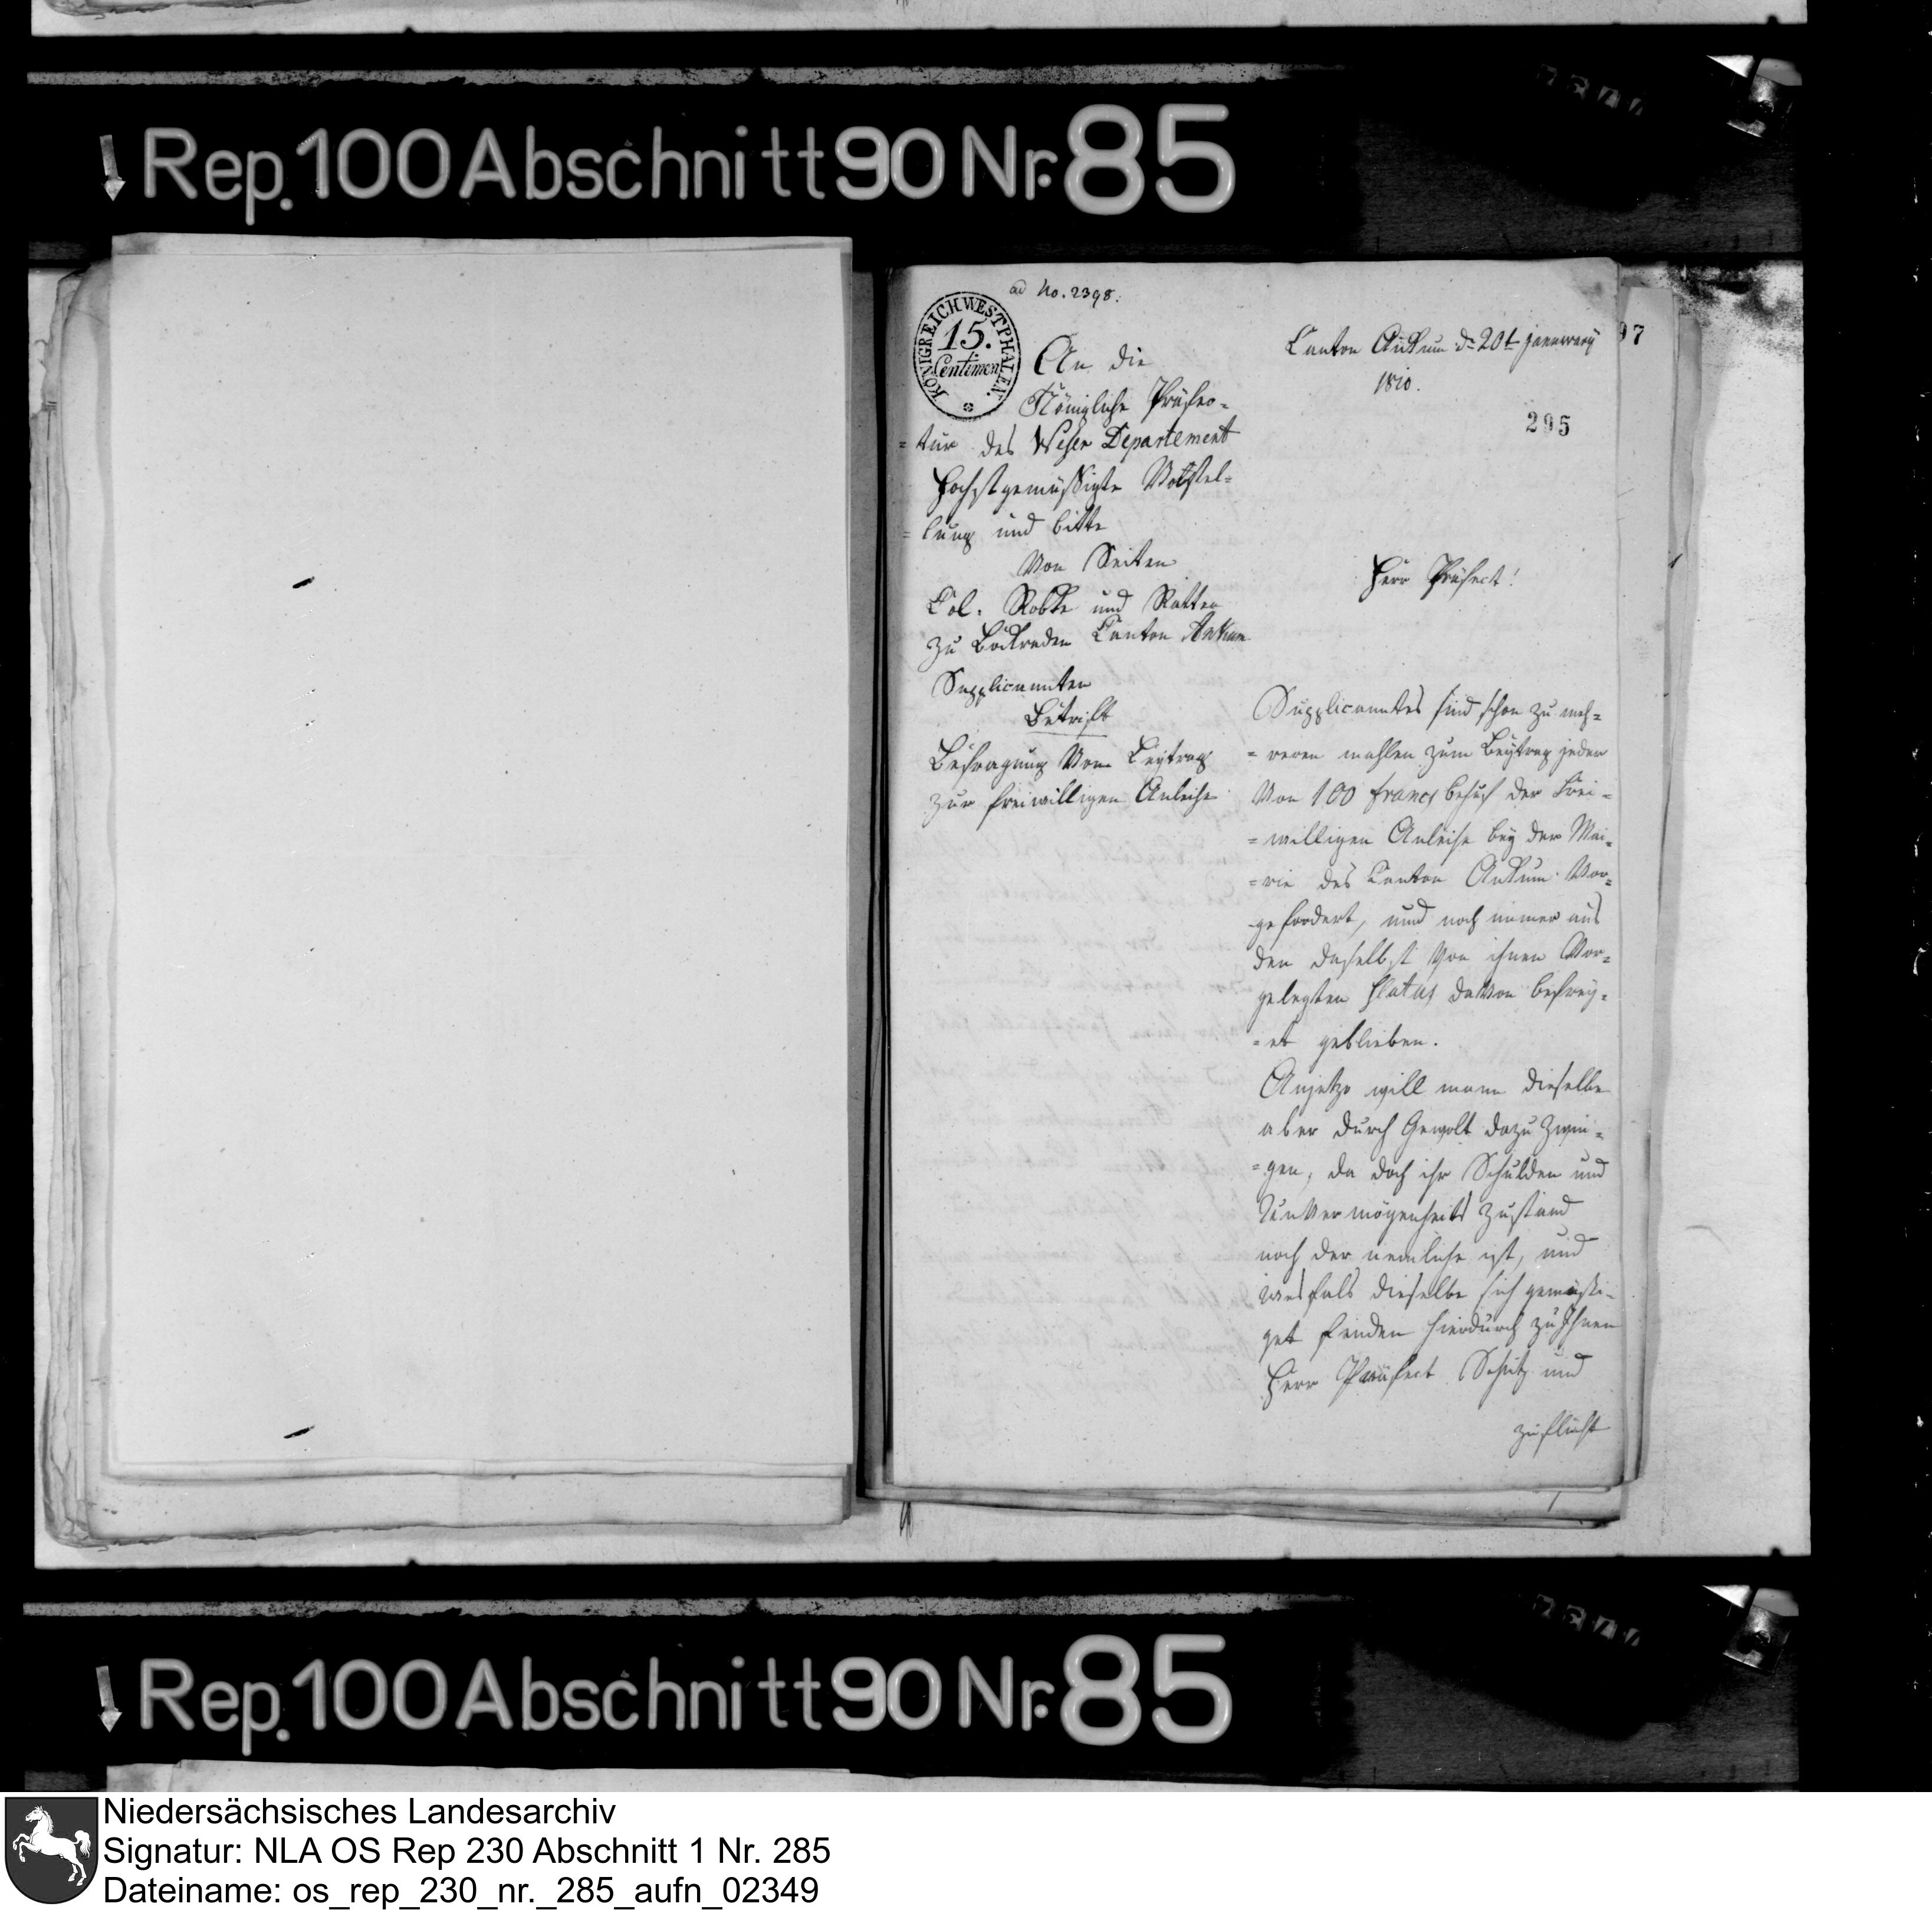 Rep. 100 Abschnitt 90 Nr. 85
ad No. 2398.
KÖNIGREICH WESTPHALEN.
15.
Centimen
Canton Ankum d. 20t January
1810.
97
295
An die
Königliche Präfec-
=tur des Weser Departement
Hochstgemüssigte Vorstel-
=lung und bitte
Von Seiten
Col. Robke und Ratten
zu Bockraden Canton Ankum
Supplicannten
Betrift
Befragung Vom Beytrag
zur freiwilligen Anleihe
Herr Präfect!
Supplicanntes sind schon zu meh-
=reren mahlen zum Beytrag jeder
Von 100 francs behuf der Frei-
=willigen Anleihe bey der Mai-
=rie des Canton Ankum Vor-
gefordert, und noch immer aus
den daselbst Von ihnen Vor-
gelegten Status daVon befrey-
=et geblieben.
Anjetzo will mann dieselbe
aber durch Gewalt dazu Zwin-
=gen, da doch ihr Schulden und
UnVermögenheits Zustand
noch der nemliche ist, und
wesfals dieselbe sich gemüssi-
get finden hierdurch zu Ihnen
Herr Präfect Schutz und
zuflucht
Rep. 100 Abschnitt 90 Nr. 85
Niedersächsisches Landesarchiv
Signatur: NLA OS Rep 230 Abschnitt 1 Nr. 285
Dateiname: os_rep_230_nr._285_aufn_02349